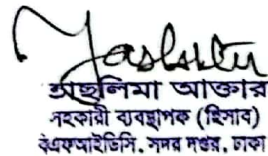 অছলিমা আক্তার
সহকারী ব্যবস্থাপক (হিসাব)
বিএফআইডিসি, সদর দপ্তর, ঢাকা